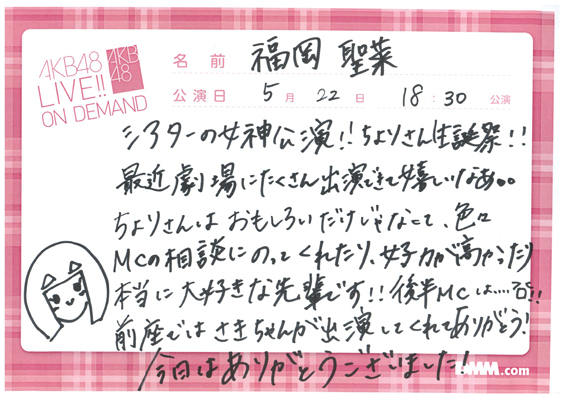 AKB48
LIVE!!
ON DEMAND
AKB
48
名前 福岡 聖菜
公演日 5月 22日 18:30 公演
シアターの女神公演!!ちよりさん生誕祭!!
最近劇場にたくさん出演できて嬉しいなあ。。
ちよりさんはおもしろいだけじゃなくて、色々
MCの相談にのってくれたり、女子力が高かったり
本当に大好きな先輩です!!後半MCは....
前座ではさきちゃんが出演してくれてありがとう!
今日はありがとうございました!
DMM.com